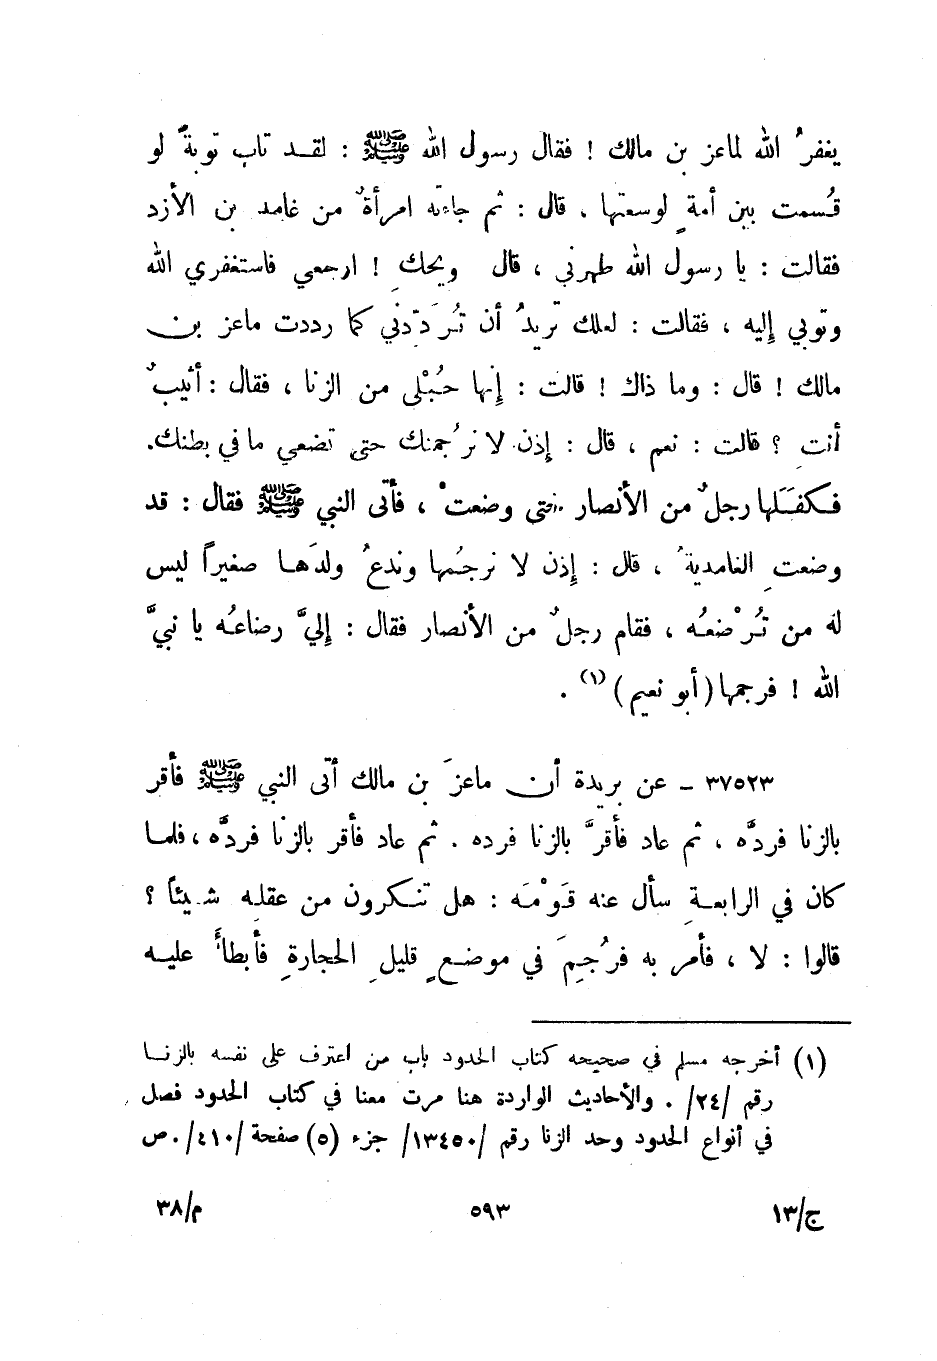 يغفرُ الله لماعز بن مالك ! فقال رسول الله ﷺ : لقد تاب توبةً لو
قُسمت بين أمةٍ لوسعتها ، قال : ثم جاءته امرأةٌ من غامد بن الأزد
فقالت : يا رسول الله طهرني ، قال ويحكِ ! ارجعي فاستغفري الله
وتوبي إليه ، فقالت : لعلك تريدُ أن تُرَدّدني كما رددت ماعز بن
مالك ! قال : وما ذاك ! قالت : إنها حُبْلى من الزنا ، فقال : أثيبٌ
أنتِ ؟ قالت : نعم ، قال : إذن لا نرجُمنك حتى تضعي ما في بطنك.
فكفَلَها رجلٌ من الأنصار حتى وضعتْ ، فأتى النبي ﷺ فقال : قد
وضعتِ الغامديةُ ، قال : إذن لا نرجُمها وندعُ ولدَها صغيراً ليس
له من تُرْضعُه ، فقام رجلٌ من الأنصار فقال : إليَّ رضاعُه يا نبيَّ
الله ! فرجمها (أبو نعيم) (١) .
٣٧٥٢٣ - عن بريدة أن ماعزَ بن مالك أتى النبي ﷺ فأقر
بالزنا فردَّه ، ثم عاد فأقرَّ بالزنا فرده . ثم عاد فأقر بالزنا فردَّه ، فلما
كان في الرابعةِ سأل عنه قَوْمَه : هل تنكرون من عقله شيئاً ؟
قالوا : لا ، فأمر به فرُجِمَ في موضعٍ قليلِ الحجارةِ فأبطأَ عليه
(١) أخرجه مسلم في صحيحه كتاب الحدود باب من اعترف على نفسه بالزنا
رقم /٢٤/ . والأحاديث الواردة هنا مرت معنا في كتاب الحدود فصل
في أنواع الحدود وحد الزنا رقم /١٣٤٥٠/ جزء (٥) صفحة /٤١٠/ . ص
ج/١٣ ٥٩٣ م/٣٨